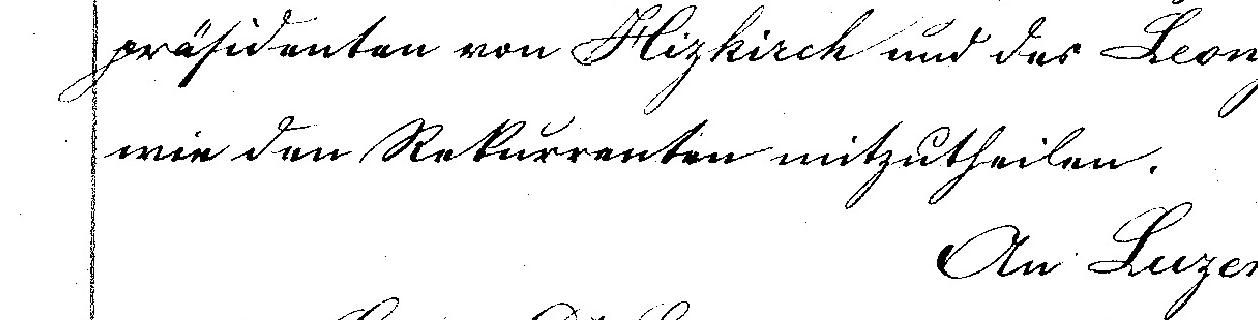 präsidenten von Hizkirch und des Leon
wie den Rekurrenten mitzutheilen.
An Luzer